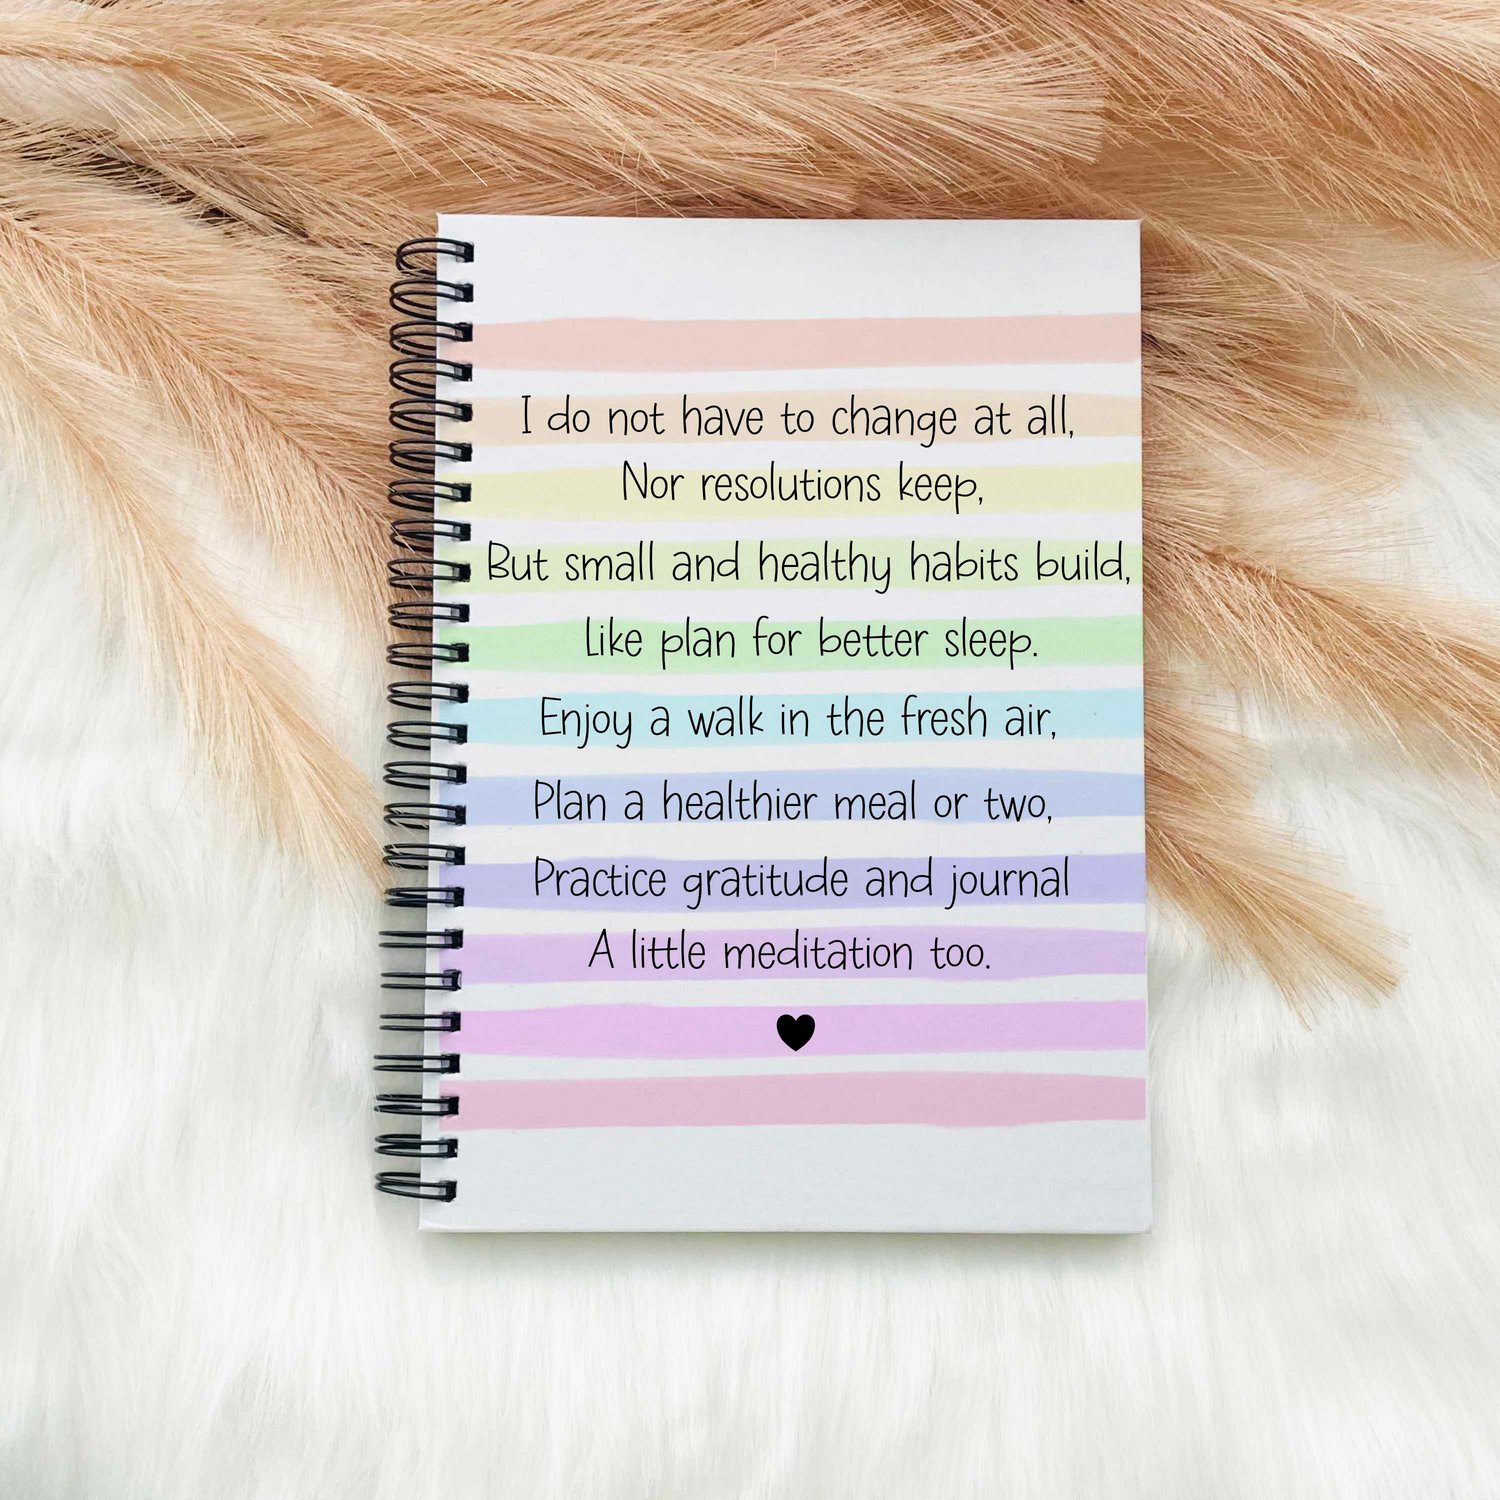 I do not have to change at all,
Nor resolutions keep,
But small and healthy habits build,
Like plan for better sleep.
Enjoy a walk in the fresh air,
Plan a healthier meal or two,
Practice gratitude and journal
A little meditation too.